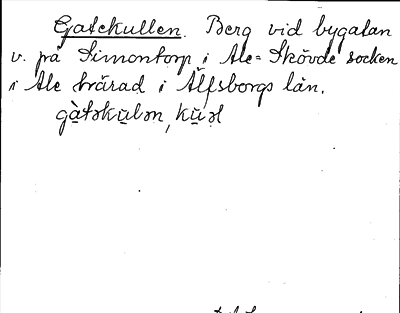 Gatekullen. Berg vid bygatan
v. på Simontorp i Ale-Skövde socken
i Ale härad i Älfsborgs län.
gàtəkulən, kuəl